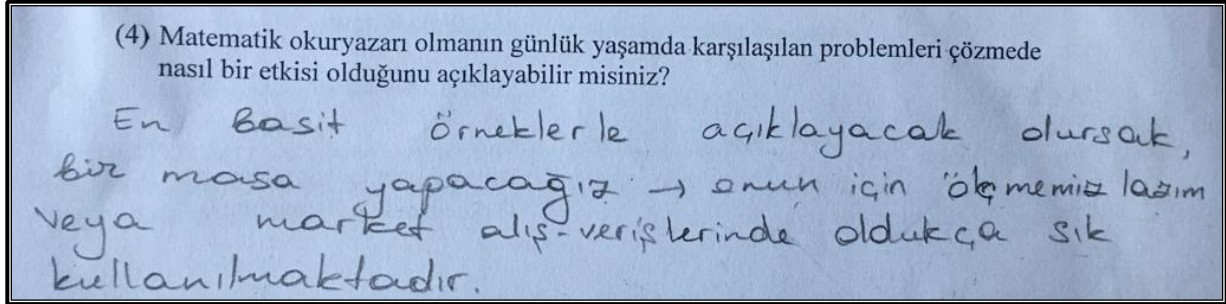 (4) Matematik okuryazarı olmanın günlük yaşamda karşılaşılan problemleri çözmede
nasıl bir etkisi olduğunu açıklayabilir misiniz?
En Basit örneklerle açıklayacak olursak,
bir masa yapacağız → onun için ölçmemiz lazım
veya market alış-verişlerinde oldukça sık
kullanılmaktadır.